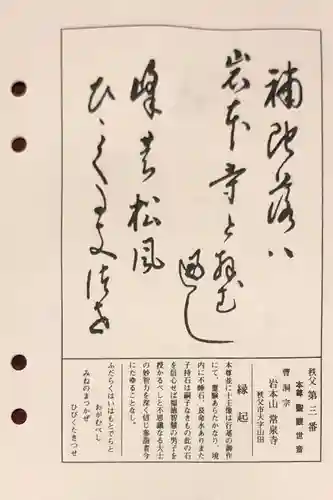 補陀落ハ
岩本寺と拝む
べし
峰の松風
ひゞくたきつせ
秩父 第三番
本尊 聖観世音
曹洞宗
岩本山 常泉寺
秩父市大字山田
縁起
本尊並に十王像は行基の御作
にて、霊験あらたかなり、境
内に不睡石、長命水ありまた
子持石は嗣子なきもの此の石
を信心せば福徳智慧の男子を
授かるべしと不思議なる大士
の妙智力を深く信じ参詣者今
にたゆることなし。
ふだらくはいはもとでらと
おがむべし
みねのまつかぜ
ひびくたきつせ